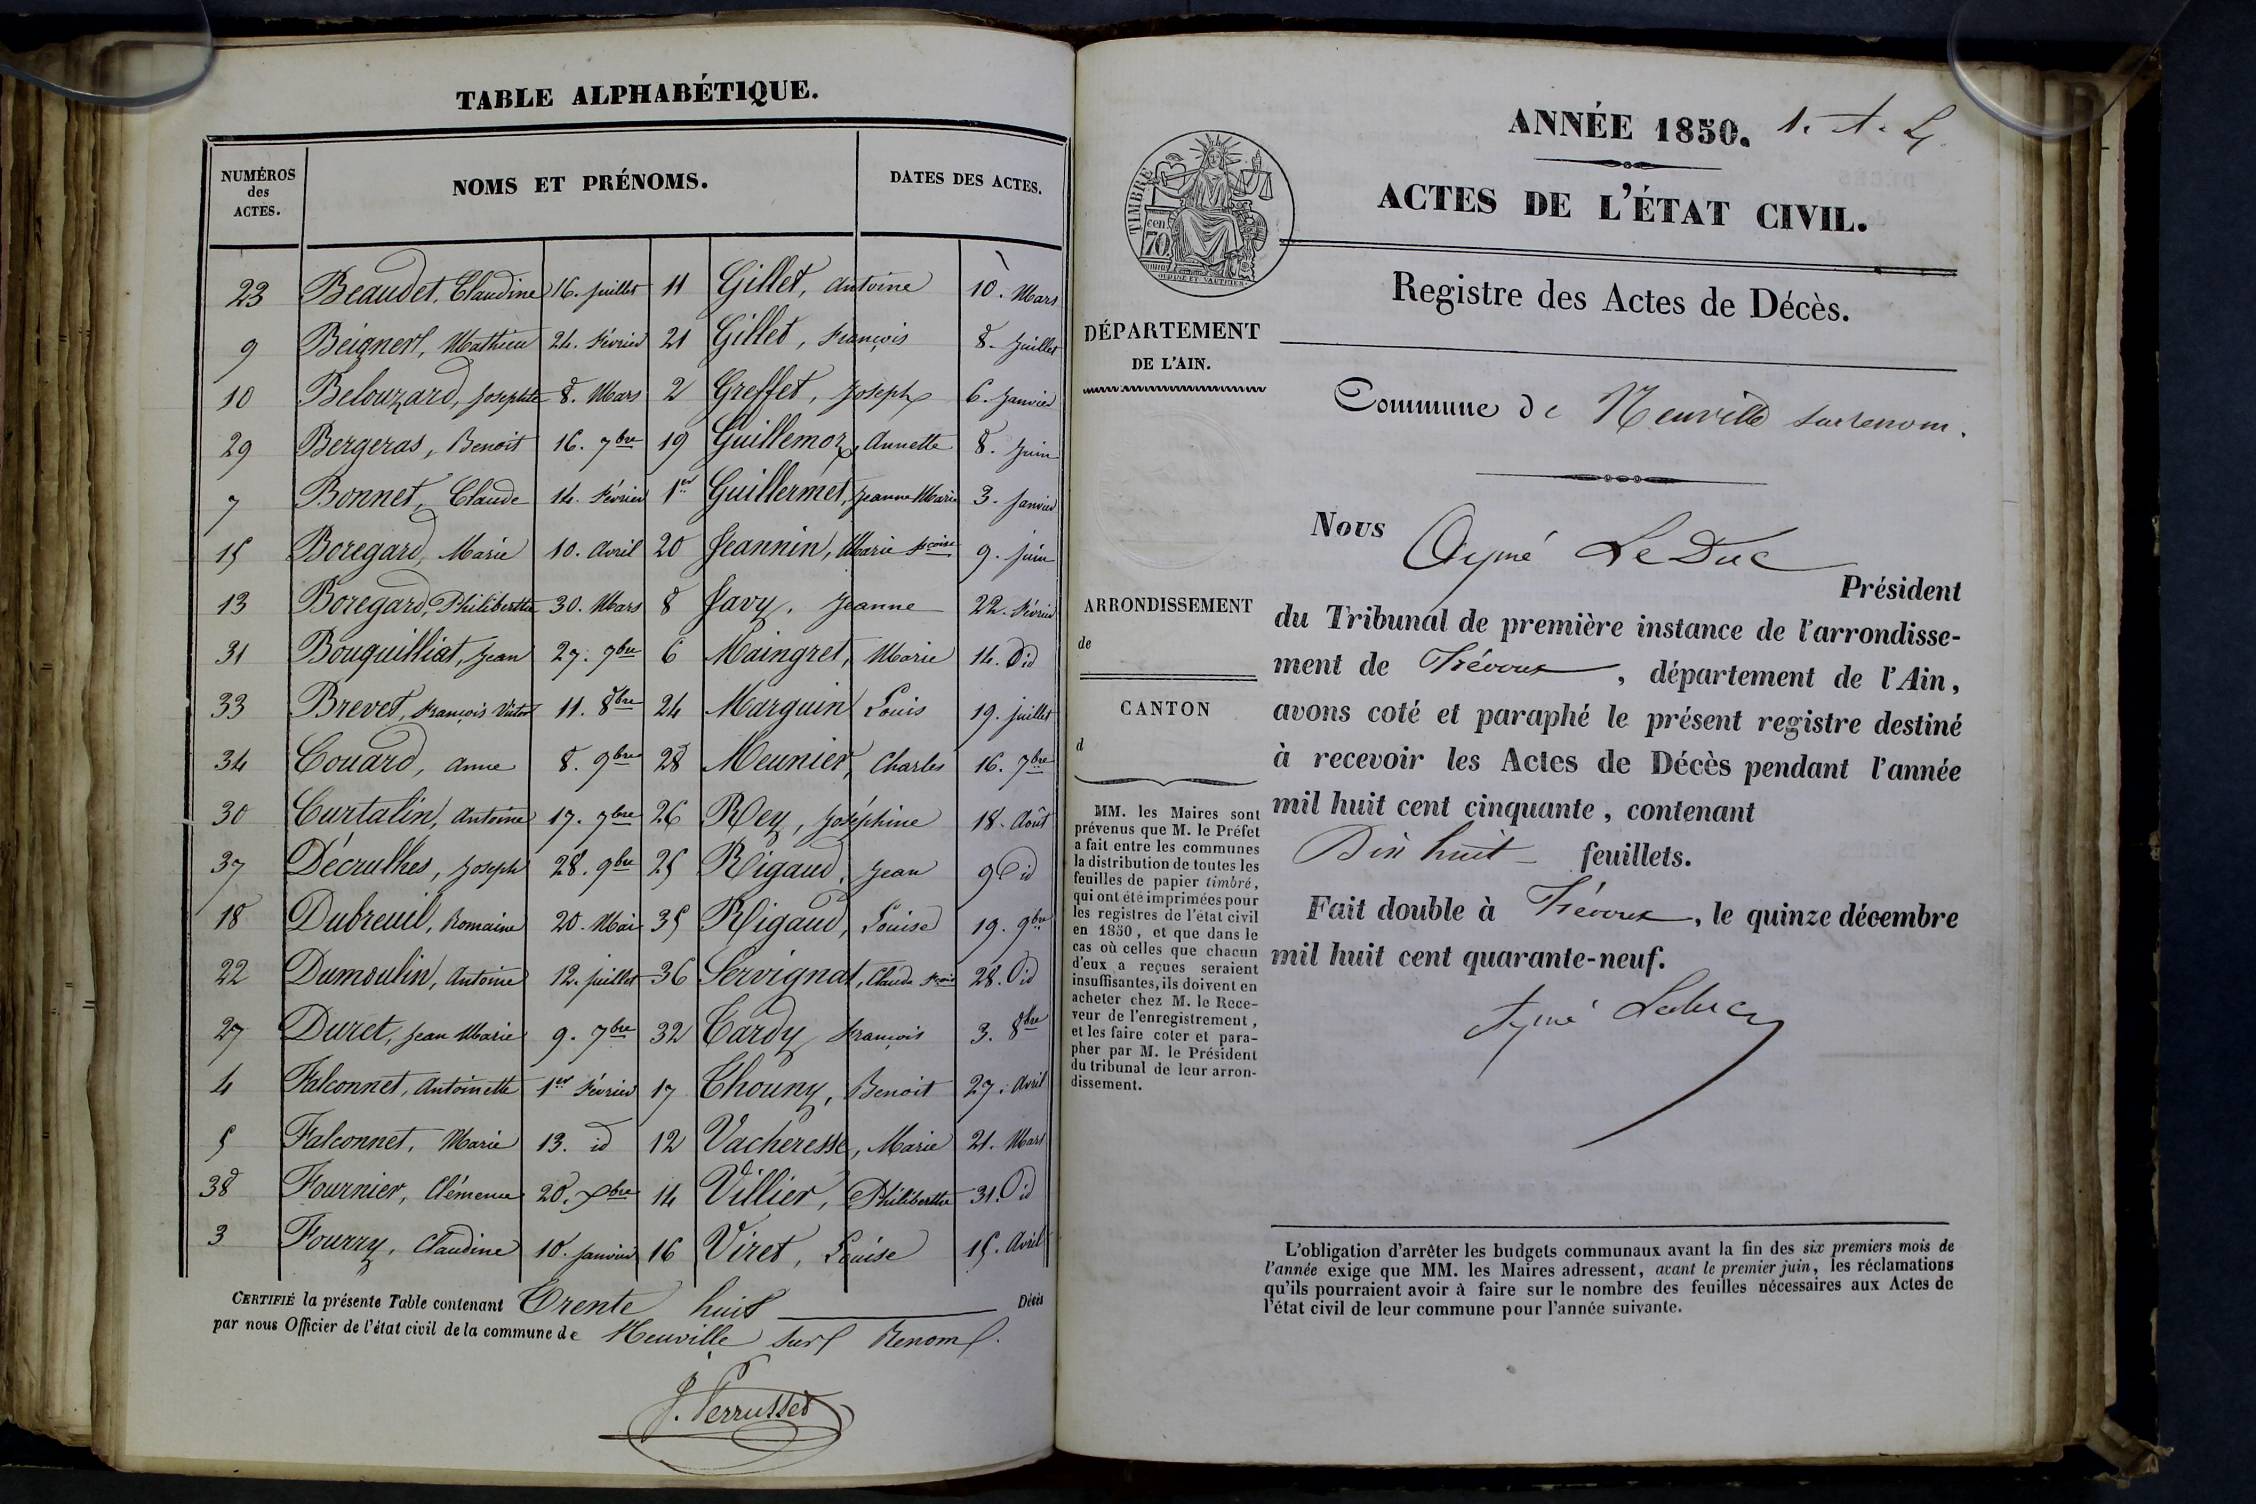 TABLE ALPHABÉTIQUE.
NUMÉROS
des
ACTES.
NOMS ET PRÉNOMS.
DATES DES ACTES.
23 Beaudet, Claudine 16. juillet 11 Gillet, Antoine 10. Mars
9 Beignert, Mathieu 24. Février 21 Gillet, François 8. Juillet
10 Belouzard, Josephte 8. Mars 2 Greffet, Joseph 6. Janvier
29 Bergeras, Benoit 16. 7bre 19 Guillemoz, Annette 8. Juin
7 Bonnet, Claude 14. Février 1er Guillermet, Jeanne Marie 3. Janvier
15 Boregard, Marie 10. Avril 20 Jeannin, Marie Fcoise 9. juin
13 Boregard, Philiberthe 30. Mars 8 Javy, Jeanne 22. Février
31 Bouquilliat, Jean 27. 7bre 6 Maingret, Marie 14. Did
33 Brevet, François Victor 11. 8bre 24 Marguin Louis 19. juillet
34 Couard, Anne 8. 9bre 28 Meunier, Charles 16. 7bre
30 Curtalin, Antoine 17. 7bre 26 Rey, Joséphine 18. Août
37 Décrulhes, Joseph 28. 9bre 25 Rigaud, Jean 9 Did
18 Dubreuil, Romaine 20. Mai 35 Rigaud, Louise 19. 9bre
22 Dumoulin, Antoine 12. juillet 36 Servignat, Claude Fcois 28. Did
27 Duret, Jean Marie 9. 7bre 32 Tardy François 3. 8bre
4 Falconnet, Antoinette 1er Février 17 Thouny, Benoit 27. Avril
5 Falconnet, Marie 13. id 12 Vacheresse, Marie 21. Mars
38 Fournier, Clémence 20. Xbre 14 Villier, Philiberthe 31. Did
3 Fourry, Claudine 10. Janvier 16 Viret, Louise 15. Avril
CERTIFIÉ la présente Table contenant Trente huit Décès
par nous Officier de l'état civil de la commune de Neuville sur Renom.
J. Perrusset
ANNÉE 1850. 1. A. L.
ACTES DE L'ÉTAT CIVIL.
Registre des Actes de Décès.
TIMBRE
70 cen
DÉPARTEMENT
DE L'AIN.
Commune de Neuville sur renom.
Nous Aymé LeDuc
Président
du Tribunal de première instance de l'arrondisse-
ment de Trévoux, département de l'Ain,
avons coté et paraphé le présent registre destiné
à recevoir les Actes de Décès pendant l'année
mil huit cent cinquante, contenant
Dix huit feuillets.
Fait double à Trévoux, le quinze décembre
mil huit cent quarante-neuf.
Aymé Leduc
ARRONDISSEMENT
de
CANTON
d
MM. les Maires sont
prévenus que M. le Préfet
a fait entre les communes
la distribution de toutes les
feuilles de papier timbré,
qui ont été imprimées pour
les registres de l'état civil
en 1850, et que dans le
cas où celles que chacun
d'eux a reçues seraient
insuffisantes, ils doivent en
acheter chez M. le Rece-
veur de l'enregistrement,
et les faire coter et para-
pher par M. le Président
du tribunal de leur arron-
dissement.
L'obligation d'arrêter les budgets communaux avant la fin des six premiers mois de
l'année exige que MM. les Maires adressent, avant le premier juin, les réclamations
qu'ils pourraient avoir à faire sur le nombre des feuilles nécessaires aux Actes de
l'état civil de leur commune pour l'année suivante.